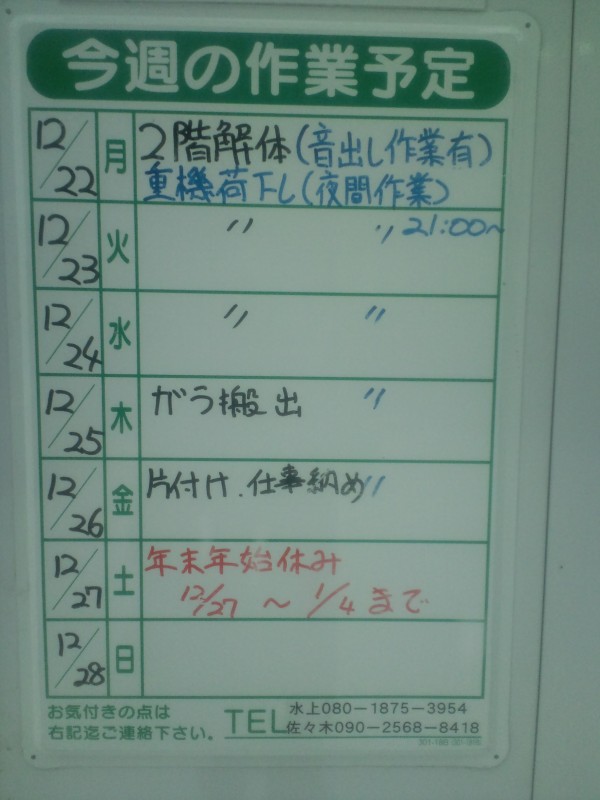 今週の作業予定
12/22 月 2階解体(音出し作業有)
重機荷下し(夜間作業)
12/23 火 〃 〃 21:00~
12/24 水 〃 〃
12/25 木 ガラ搬出 〃
12/26 金 片付け.仕事納め 〃
12/27 土 年末年始休み
12/27 ~ 1/4 まで
12/28 日
お気付きの点は
右記迄ご連絡下さい。
TEL
水上080-1875-3954
佐々木090-2568-8418